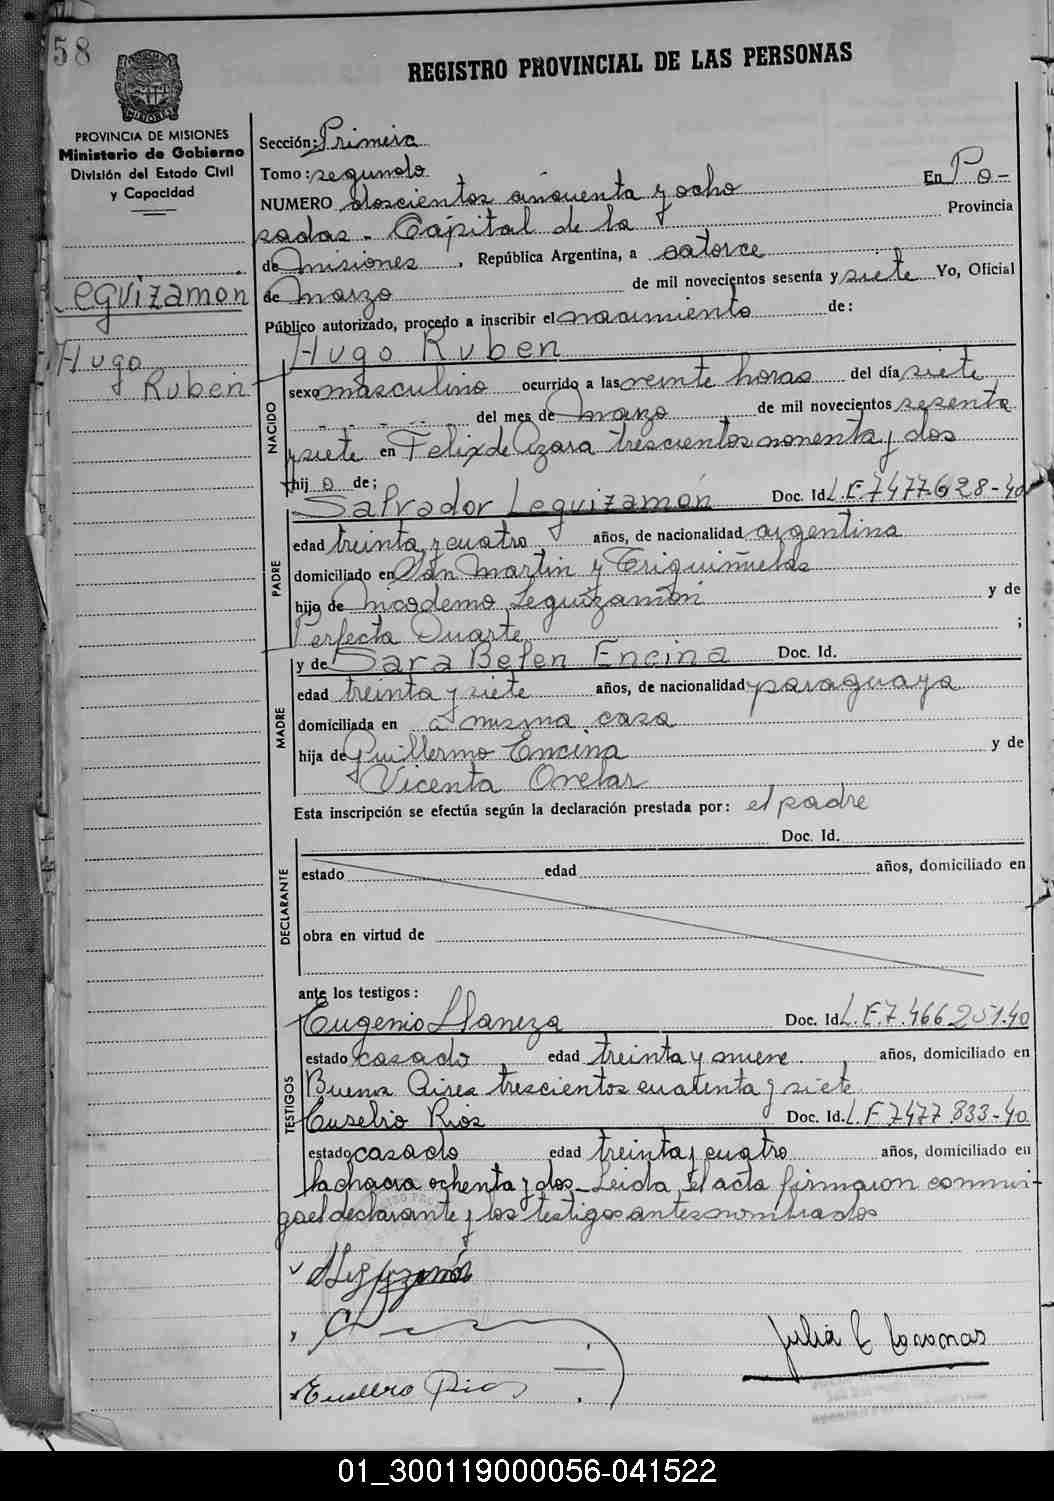 58
REGISTRO PROVINCIAL DE LAS PERSONAS
PROVINCIA DE MISIONES
Ministerio de Gobierno
División del Estado Civil
y Capacidad
Leguizamón
Hugo
Ruben
Sección: Primera
Tomo: segundo
NUMERO doscientos cincuenta y ocho En Po-
sadas - Capital de la Provincia
de Misiones, República Argentina, a catorce
de Marzo de mil novecientos sesenta y siete Yo, Oficial
Público autorizado, procedo a inscribir el nacimiento de:
Hugo Ruben
NACIDO
sexo masculino ocurrido a las veinte horas del día siete
del mes de Marzo de mil novecientos sesenta
y siete en Felix de Azara trescientos noventa y dos
hijo de;
Salvador Leguizamón Doc. Id. L.E 7.477.628-40
PADRE
edad treinta y cuatro años, de nacionalidad argentina
domiciliado en San Martin y Trinquiñuelas
hijo de Nicodemo Leguizamón y de
Perfecta Duarte ;
y de Sara Belen Encina Doc. Id.
MADRE
edad treinta y siete años, de nacionalidad paraguaya
domiciliada en la misma casa
hija de Guillermo Encina y de
Vicenta Ovelar
Esta inscripción se efectúa según la declaración prestada por: el padre
Doc. Id.
DECLARANTE
estado edad años, domiciliado en
obra en virtud de
ante los testigos:
Eugenio Llaneza Doc. Id. L.E.7.466.251.40
TESTIGOS
estado casado edad treinta y nueve años, domiciliado en
Buenos Aires trescientos cuarenta y siete
Eusebio Rios Doc. Id. L.E 7477.833-40
estado casado edad treinta y cuatro años, domiciliado en
la chacra ochenta y dos - Leida el acta firmaron conmi-
go el declarante y los testigos antes nombrados
SLeguizamón
Eusebio Rios
Julia C
01_300119000056-041522